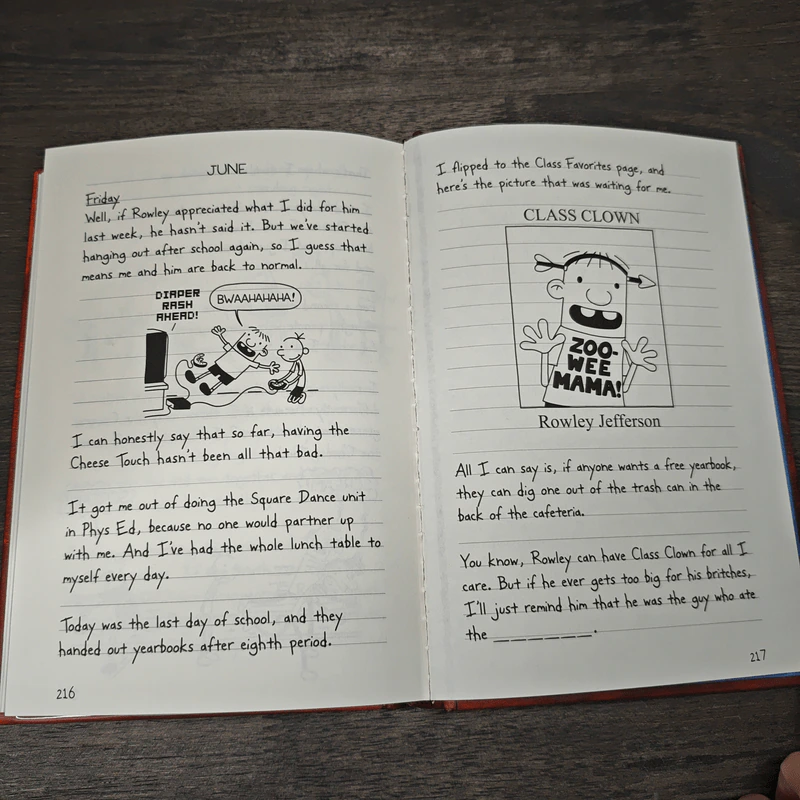 JUNE
Friday
Well, if Rowley appreciated what I did for him
last week, he hasn't said it. But we've started
hanging out after school again, so I guess that
means me and him are back to normal.
DIAPER
RASH
AHEAD!
BWAAHAHAHA!
I can honestly say that so far, having the
Cheese Touch hasn't been all that bad.
It got me out of doing the Square Dance unit
in Phys Ed, because no one would partner up
with me. And I've had the whole lunch table to
myself every day.
Today was the last day of school, and they
handed out yearbooks after eighth period.
216
I flipped to the Class Favorites page, and
here's the picture that was waiting for me.
CLASS CLOWN
ZOO-
WEE
MAMA!
Rowley Jefferson
All I can say is, if anyone wants a free yearbook,
they can dig one out of the trash can in the
back of the cafeteria.
You know, Rowley can have Class Clown for all I
care. But if he ever gets too big for his britches,
I'll just remind him that he was the guy who ate
the _ _ _ _ _ _.
217